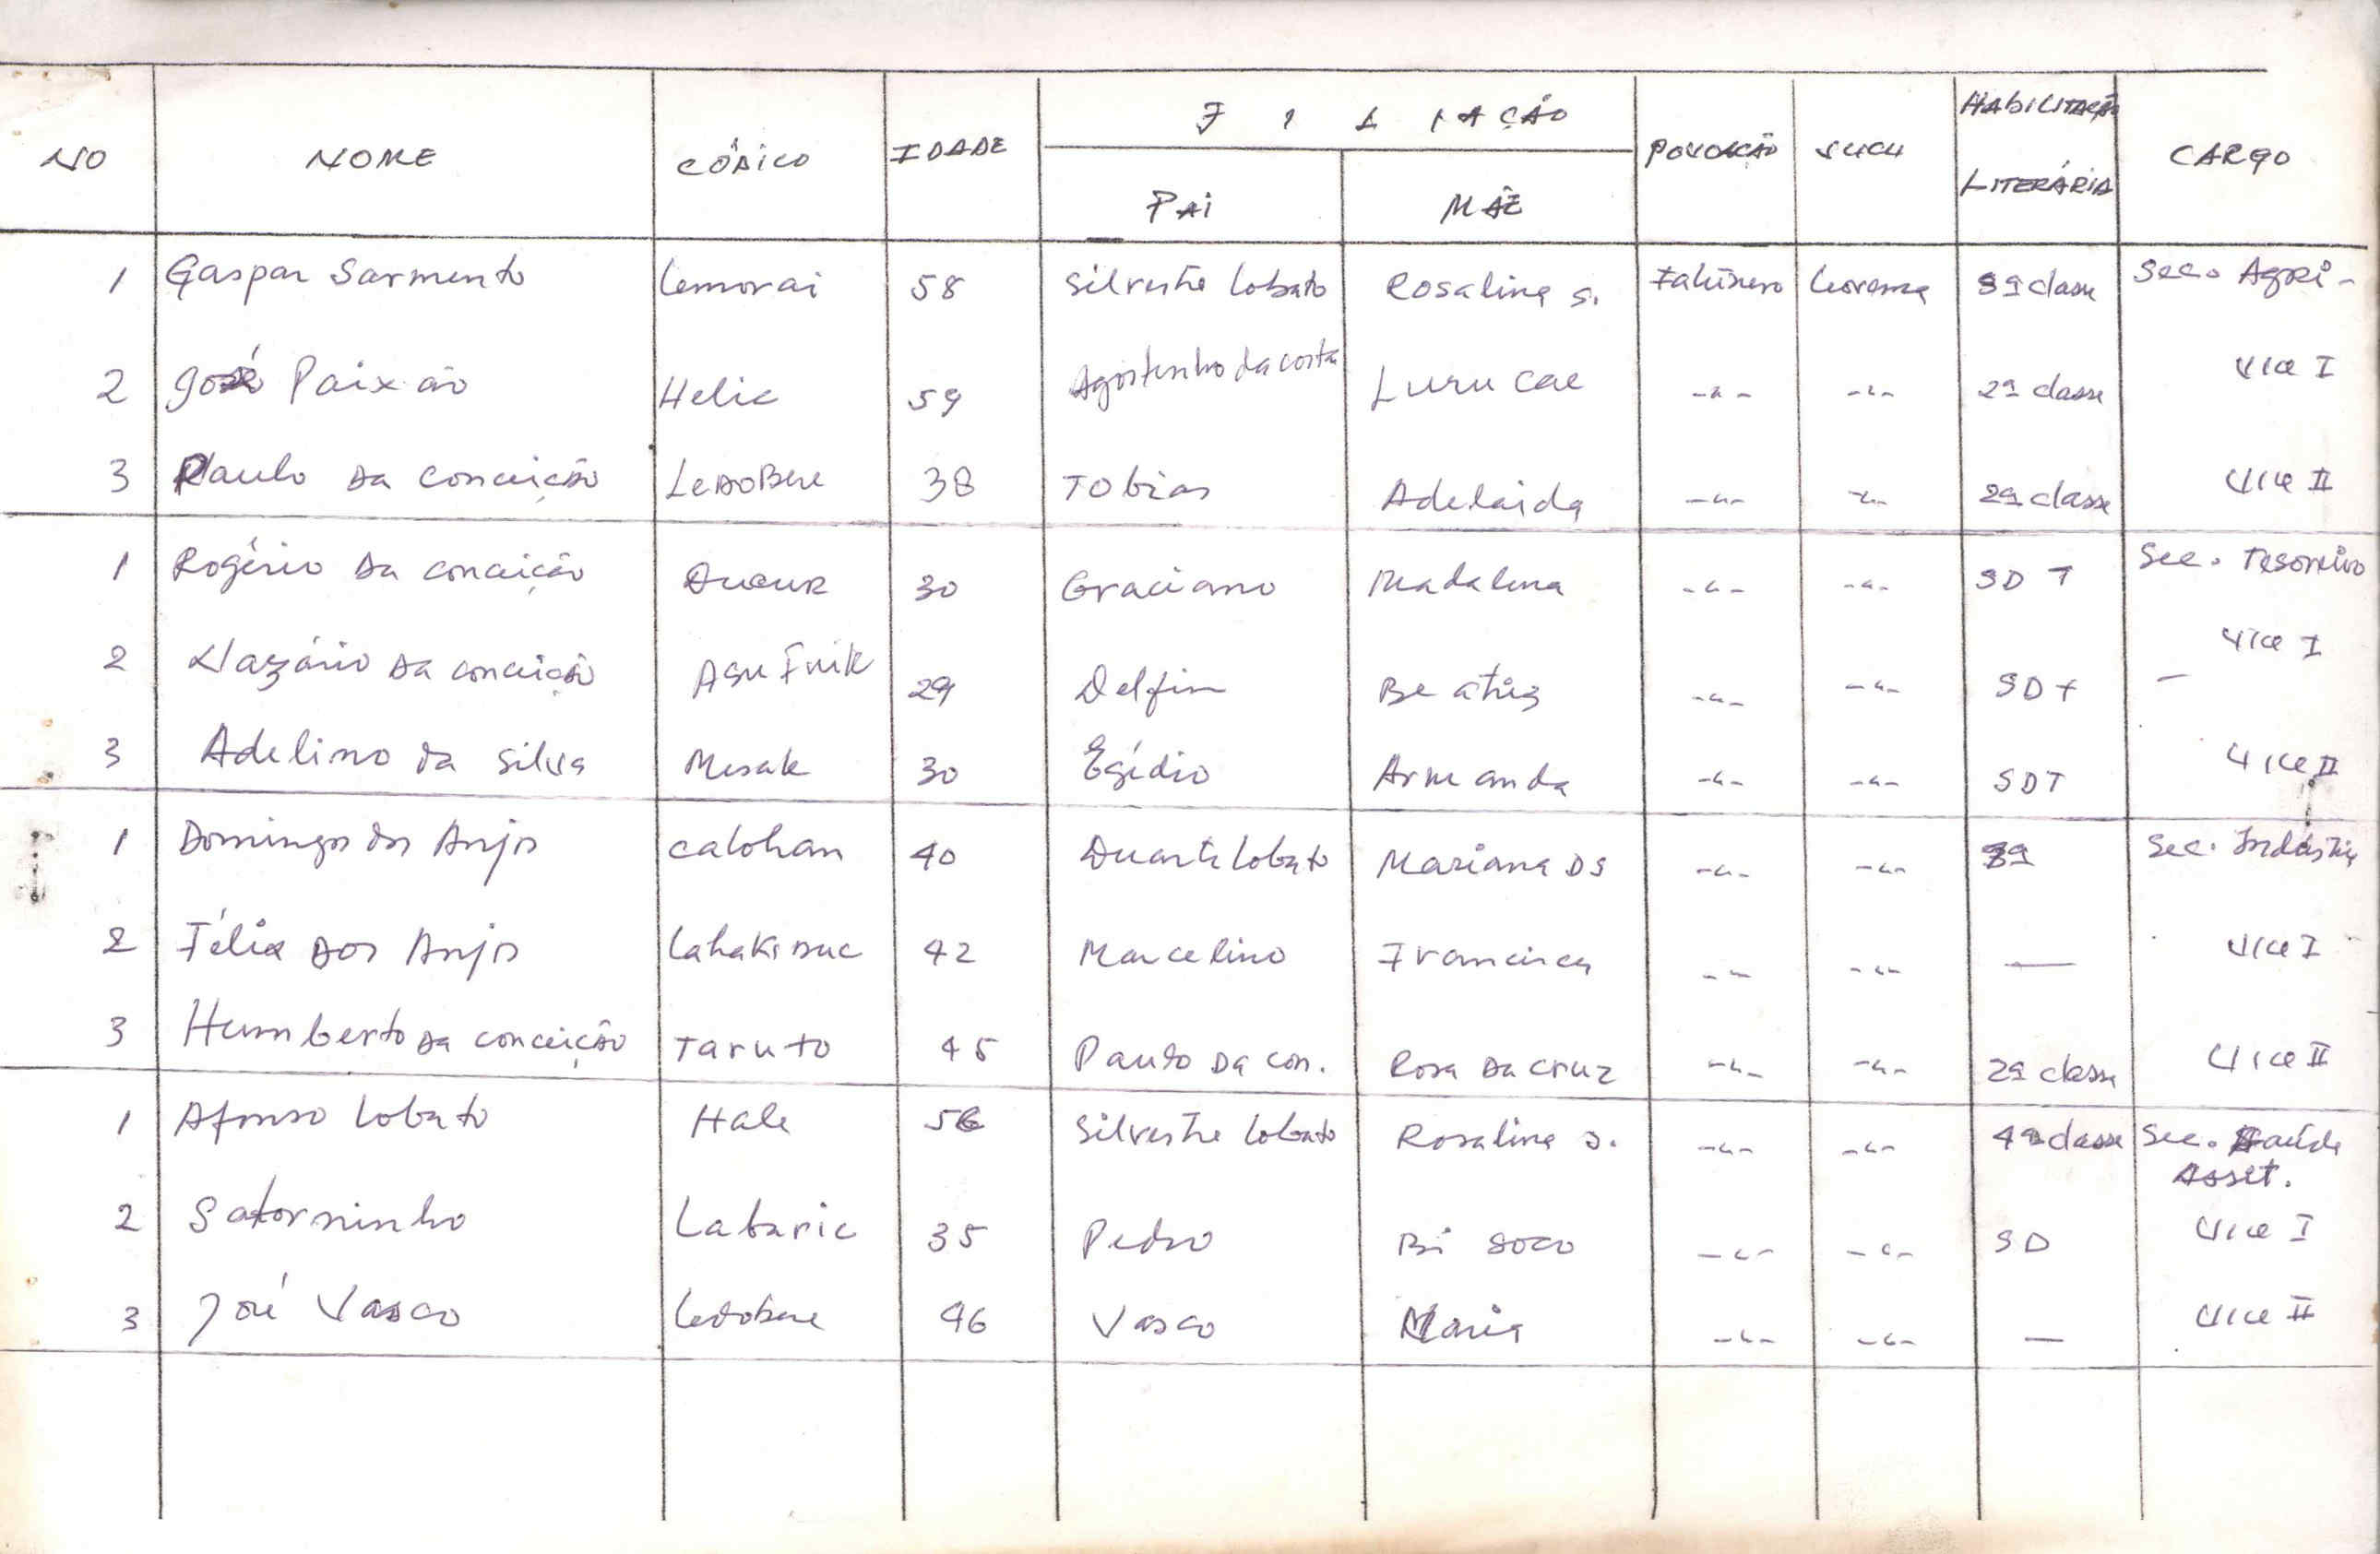 NO NOME CÓDICO IDADE FILIAÇÃO POVOAÇÃO SUCU HABILITAÇÃO LITERÁRIA CARGO
PAI MÃE
1 Gaspar Sarmento Lemorai 58 Silvestre Lobato Rosalina S. 3ª classe Sec. Agri-
2 José Paixão Helic 59 Agostinho da costa Luru Cae -"- -"- 2ª classe Vice I
3 Paulo Da Conceição LedoBere 38 Tobias Adelaida -"- -"- 2ª classe Vice II
1 Rogério Da conceição 30 Graciano Madalena -"- -"- SDT Sec. Tesoreiro
2 Nazário Da conceição Asu Fuik 29 Delfin Beatriz -"- -"- SDT - Vice I
3 Adelino da Silva Mesak 30 Egídio Armanda -"- -"- SDT Vice II
1 Domingos dos Anjos calohan 40 Duarte lobato Mariana DS -"- -"- 3ª Sec. Indústria
2 Félix Dos Anjos 42 Marcelino Francisca -"- -"- — Vice I
3 Humberto Da conceição Taruto 45 Paulo Da con. Rosa Da cruz -"- -"- 2ª classe Vice II
1 Afonso Lobato Hale 56 Silvestre Lobato Rosalina S. -"- -"- 4ª classe Sec. Saúde
Asset.
2 Satorninho Labaric 35 Pedro Bi Soco -"- -"- SD Vice I
3 José Vasco Ledobere 46 Vasco Maria -"- -"- — Vice II